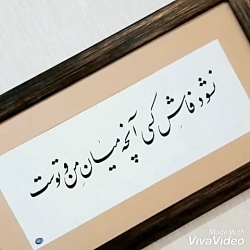 نشود فاش کسی آنچه میان من و توست
Made With
VivaVideo